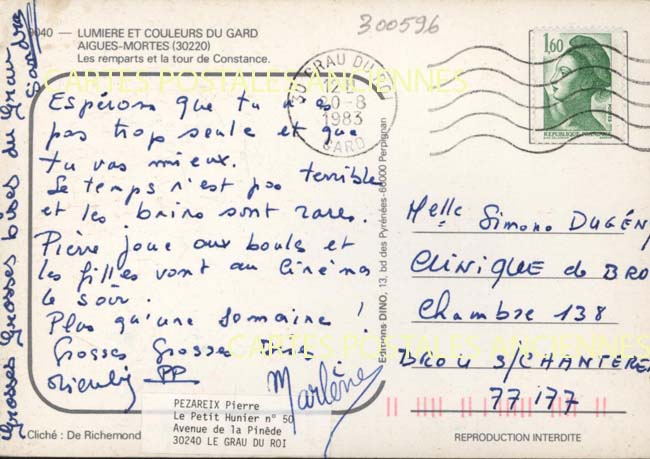 9040 — LUMIERE ET COULEURS DU GARD
AIGUES-MORTES (30220)
Les remparts et la tour de Constance.
300596
CARTES POSTALES ANCIENNES
30 GRAU DU ROI
12H
20-8
1983
GARD
1,60
REPUBLIQUE FRANÇAISE
Espérons que tu n'es
pas trop seule et que
tu vas mieux.
Le temps n'est pas terrible
et les bains sont rares.
Pierre joue aux boules et
les filles vont au Cinéma
le soir.
Plus qu'une semaine !
Grosses Grosses bises
PP
Marlène
Grosses Grosses bises du Grau
Editions DINO, 13, bd des Pyrénées-66000 Perpignan
Melle Simone DUGÉNY
CLINIQUE de BROU
Chambre 138
BROU S/CHANTERE
77177
CARTES POSTALES ANCIENNES
PEZAREIX Pierre
Le Petit Hunier n° 50
Avenue de la Pinède
30240 LE GRAU DU ROI
Cliché : De Richemond
REPRODUCTION INTERDITE